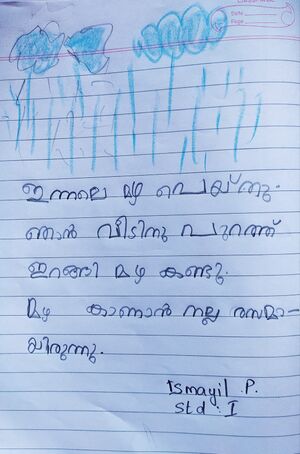 Date
Page
ഇന്നലെ മഴ പെയ്തു.
ഞാൻ വീടിനു പുറത്ത്
ഇറങ്ങി മഴ കണ്ടു.
മഴ കാണാൻ നല്ല രസമാ-
യിരുന്നു.
Ismayil P.
Std : I